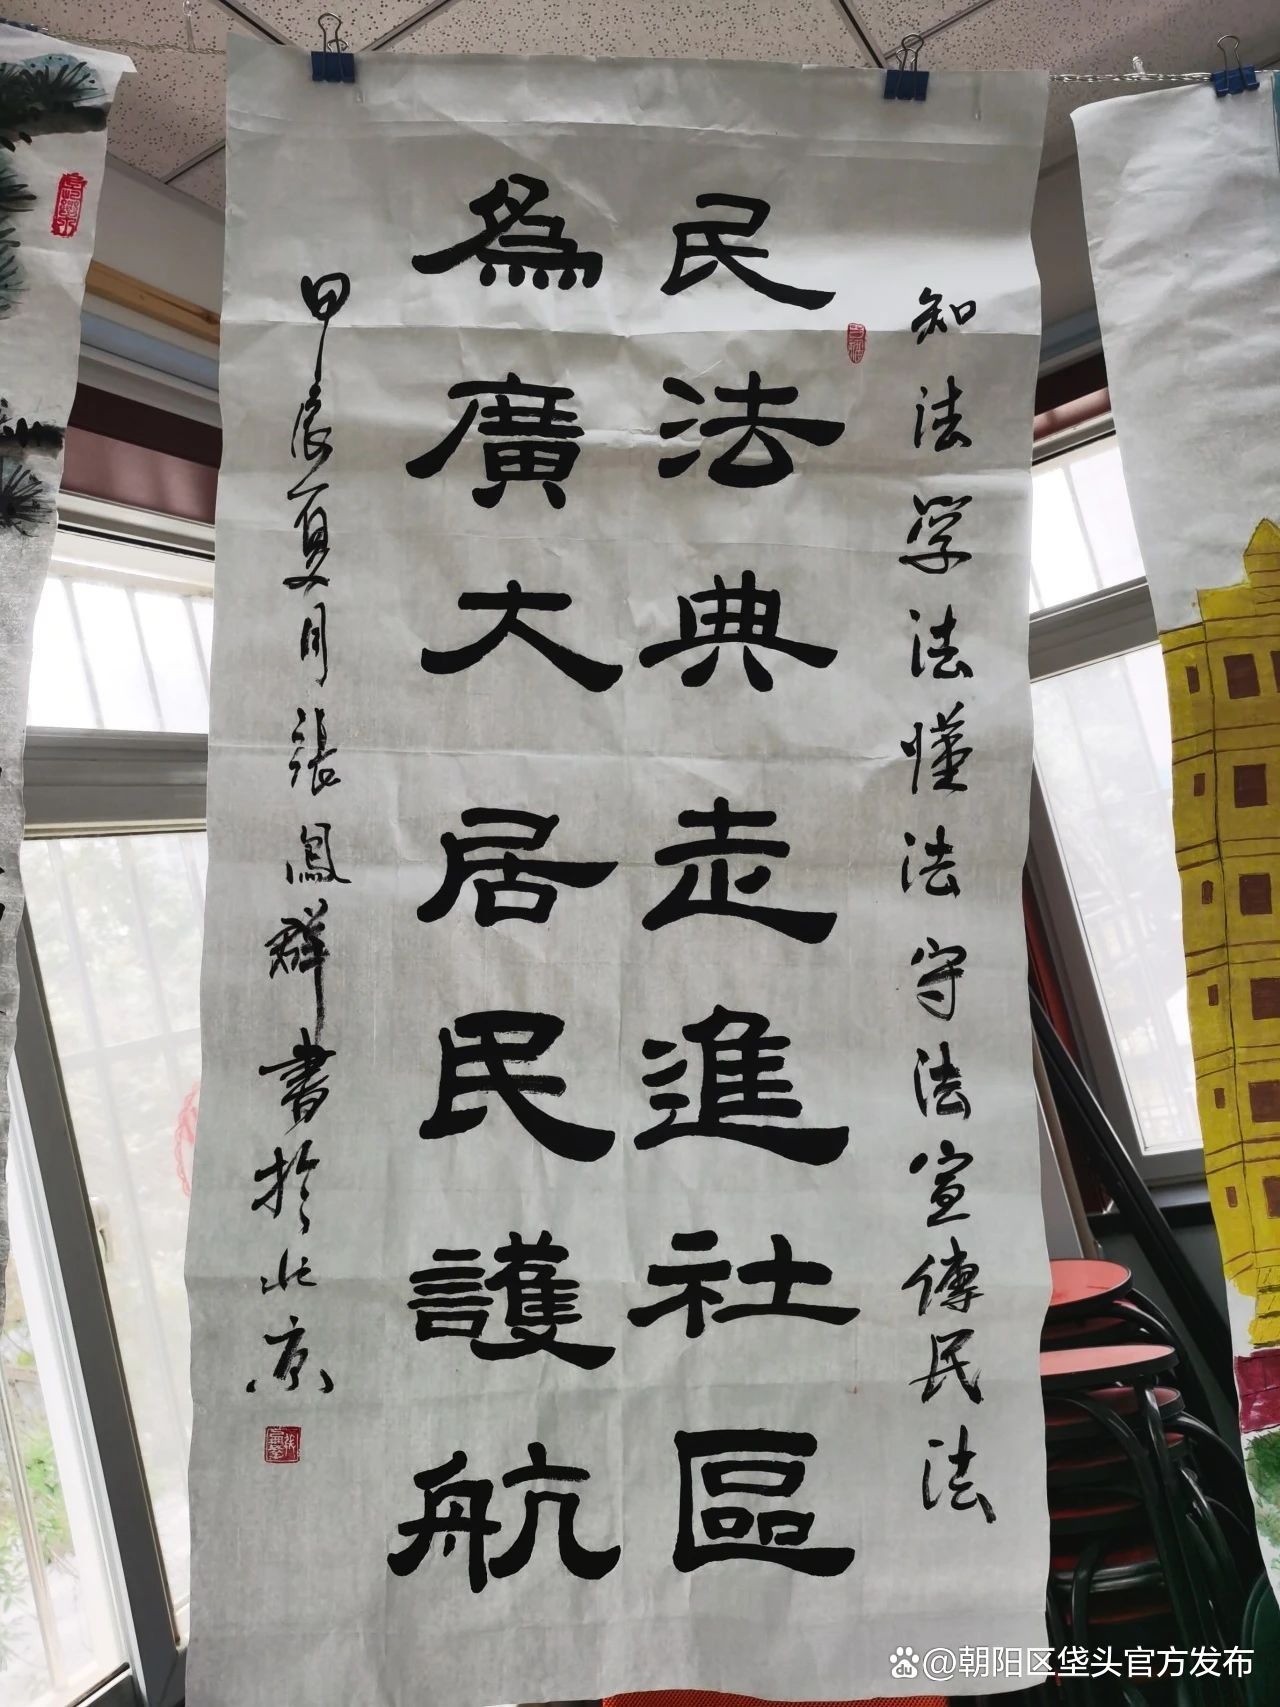 知法学法懂法守法宣傳民法
民法典走進社區
為廣大居民護航
甲辰夏月張鳳群書於北京
@朝阳区垡头官方发布